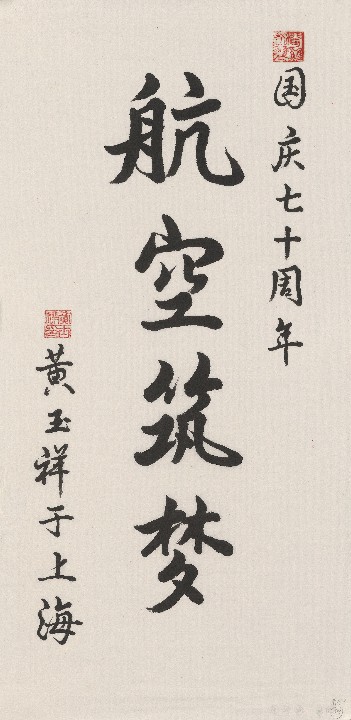 国庆七十周年
航空筑梦
黄玉祥于上海